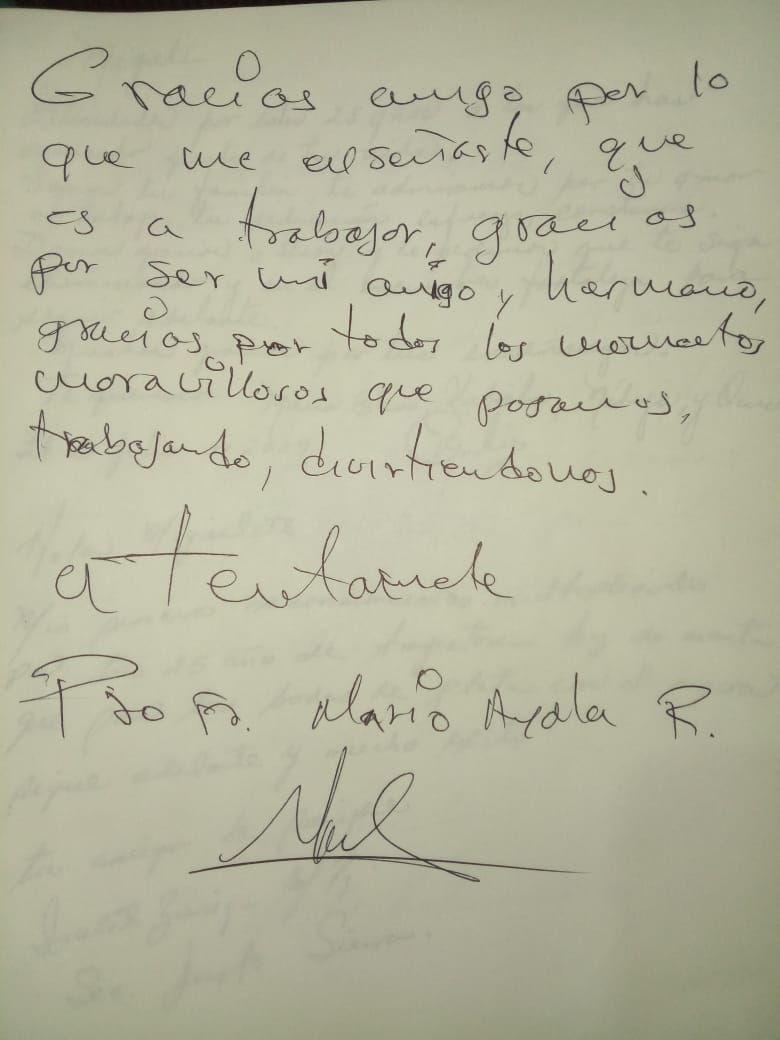 Gracias amigo por lo
que me enseñaste, que
es a trabajar, gracias
por ser mi amigo y hermano,
gracias por todos los momentos
maravillosos que pasamos,
trabajando, divirtiendonos.
atentamente
Profr. Mario Ayala R.